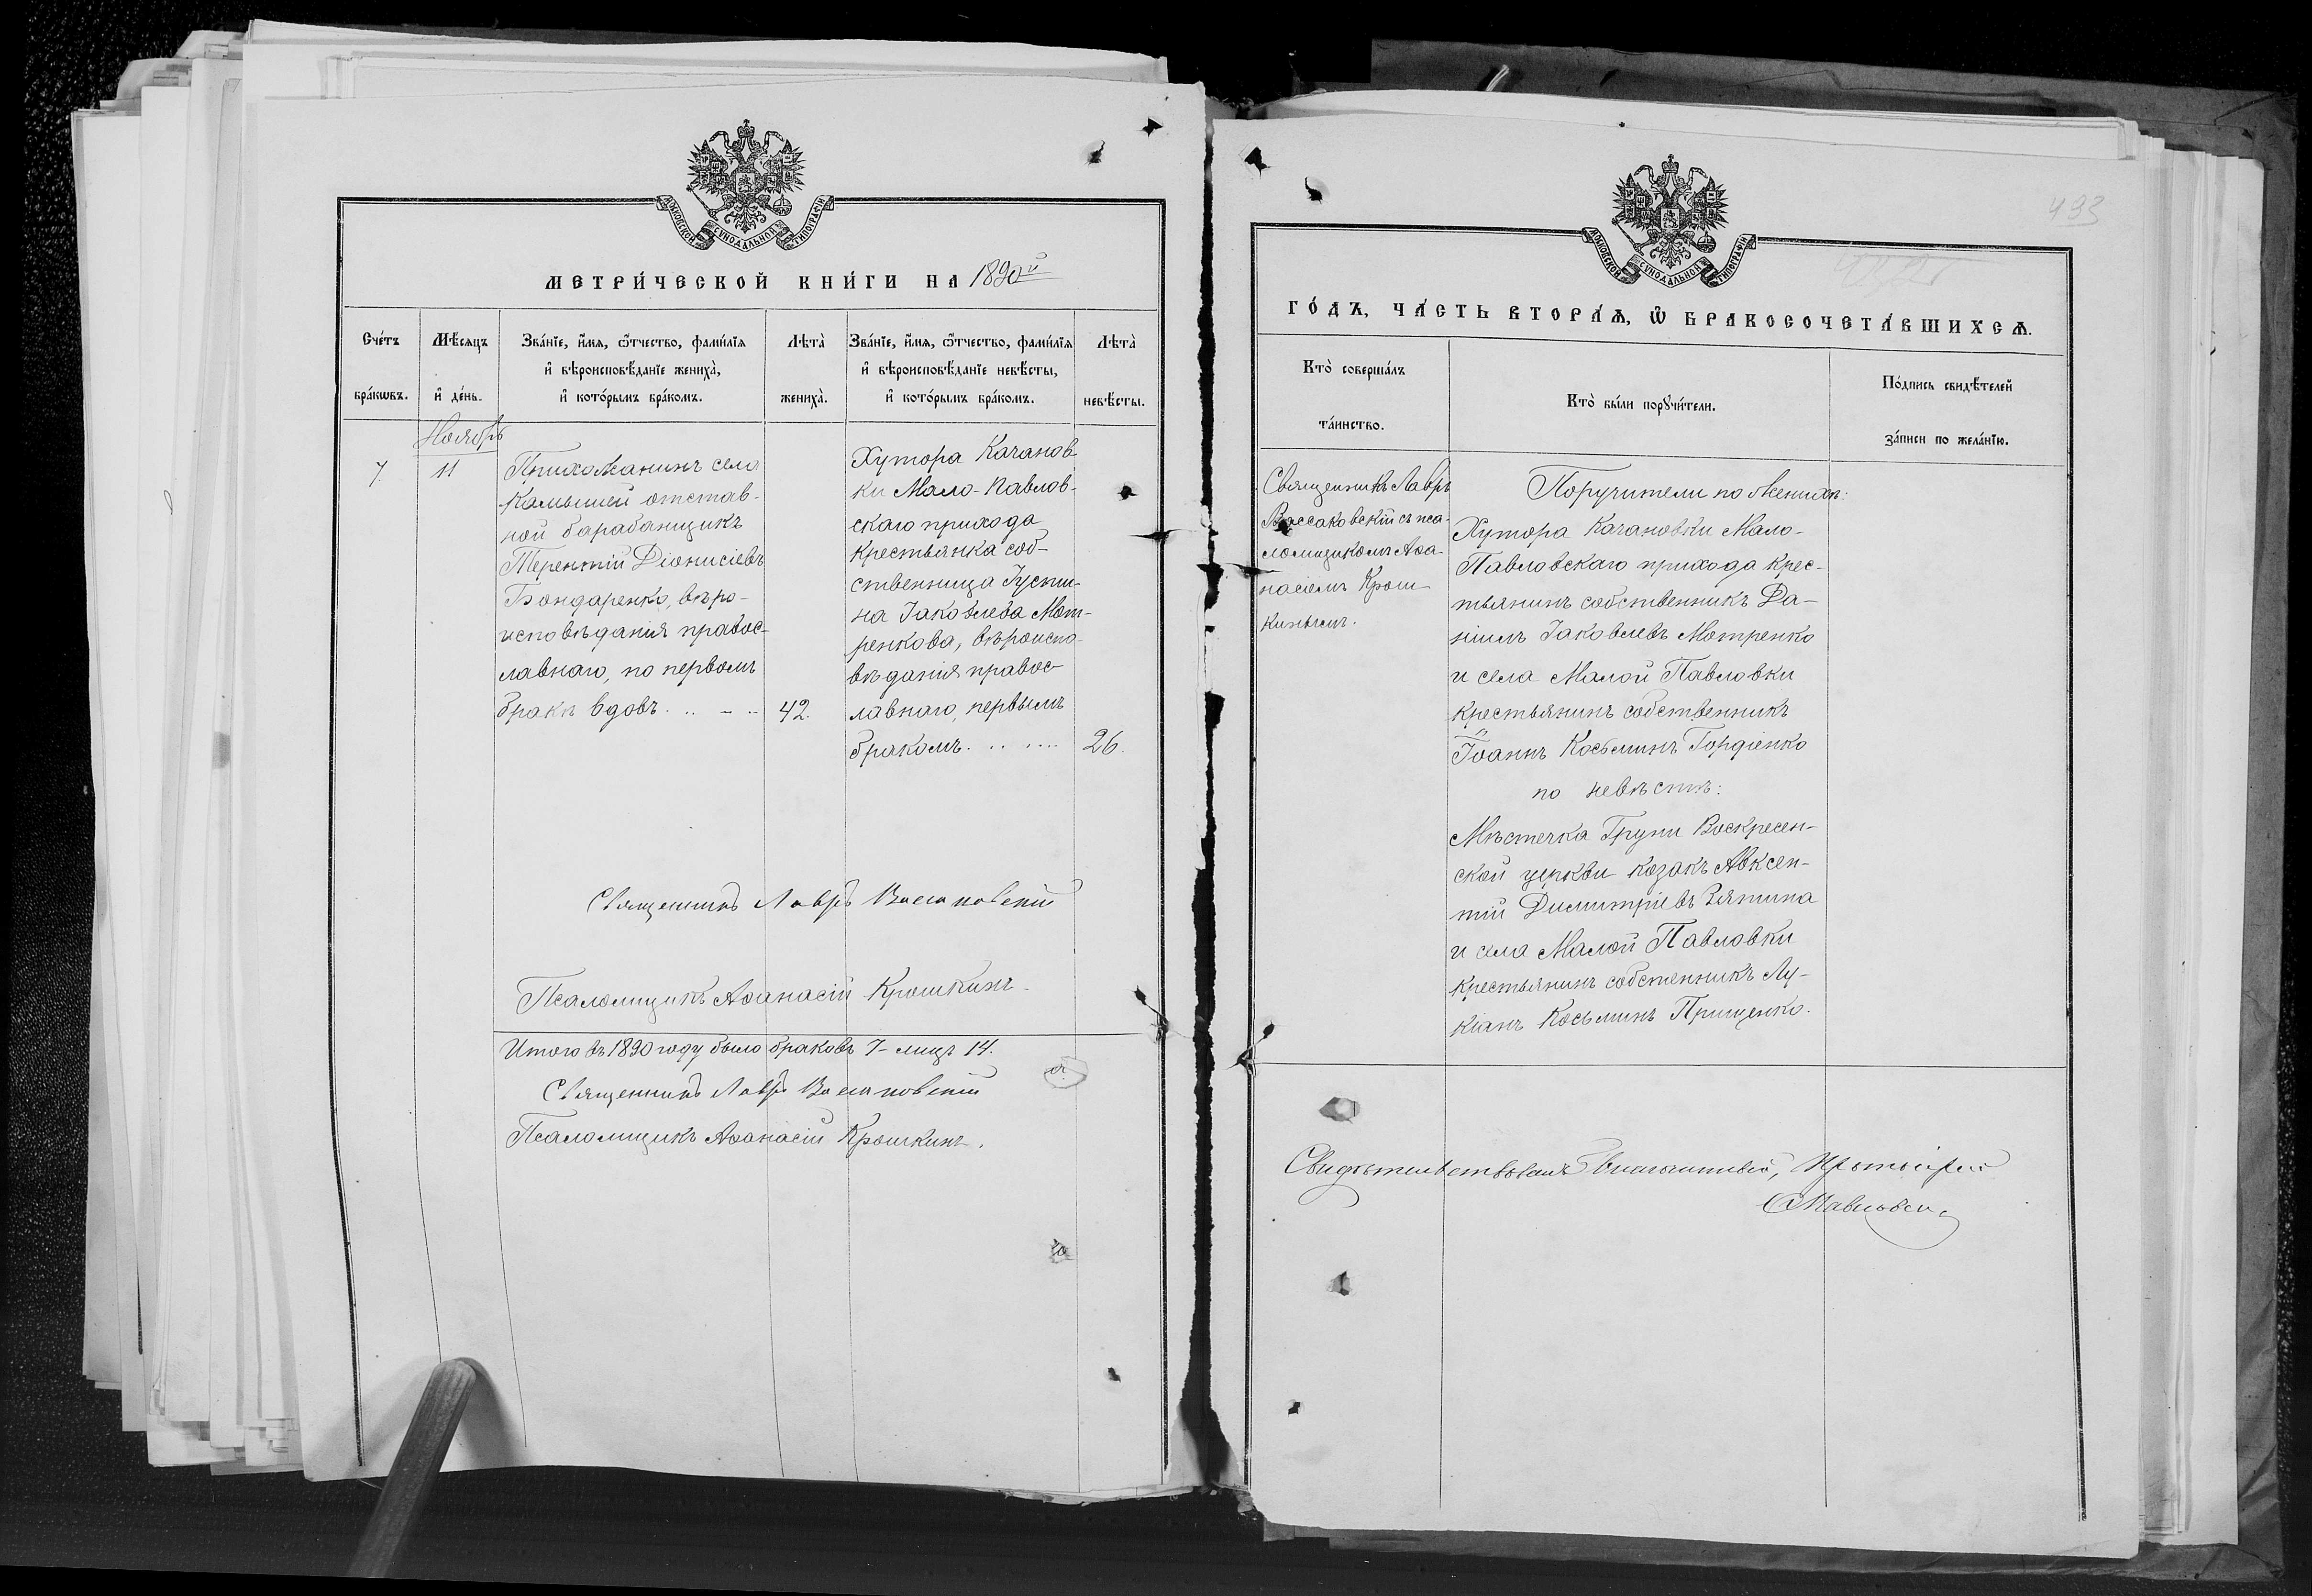 МОСКОВСКОЙ СѴНОДАЛЬНОЙ ТИПОГРАФІИ
МЕТРИ́ЧЕСКОЙ КНИ́ГИ НА 1890й
Сче́тъ бра́кѡвъ.
Мѣ́сяцъ и҆ де́нь.
Зва́нїе, и҆́мѧ, ѻ҆́тчество, фами́лїѧ и҆ вѣроисповѣ́данїе жениха̀, и҆ кото́рымъ бра́комъ.
Лѣта̀ жениха̀.
Зва́нїе, и҆́мѧ, ѻ҆́тчество, фами́лїѧ и҆ вѣроисповѣ́данїе невѣ́сты, и҆ кото́рымъ бра́комъ.
Лѣта̀ невѣ́сты.
Ноябрь
7.
11
Прихожанинъ села
Камышей отстав-
ной барабанщикъ
Терентій Діонисіевъ
Бондаренко, вѣро-
исповѣданія правос-
лавнаго, по первомъ
бракѣ вдовъ
42.
Хутора Качанов-
ки Мало-Павлов-
скаго прихода
крестьянка соб-
ственница Іусти-
на Іаковлева Мот-
ренкова, вѣроиспо-
вѣданія правос-
лавнаго, первымъ
бракомъ
26.
Священникъ Лавръ
Псаломщикъ Аѳанасій Крошкинъ.
Итого въ 1890 году было браковъ 7 - лицъ 14.
Священникъ Лавръ
Псаломщикъ Аѳанасій Крошкинъ.
493
МОСКОВСКОЙ СѴНОДАЛЬНОЙ ТИПОГРАФІИ
ГО́ДЪ, ЧА́СТЬ ВТОРА́Ѧ, Ѽ БРАКОСОЧЕТА́ВШИХСѦ.
Кто̀ соверша́лъ та́инство.
Кто̀ бы́ли порꙋчи́тели.
По́дпись свидѣ́телей за́писи по жела́нїю.
Священникъ Лавръ
съ пса-
ломщикомъ Аѳа-
насіемъ Крош-
кинымъ.
Поручители по женихѣ:
Хутора Качановки Мало-
Павловскаго прихода крес-
тьянинъ собственникъ Да-
ніилъ Іаковлевъ Мотренко
и села Малой Павловки
крестьянинъ собственникъ
Іоаннъ Косьминъ Гордіенко
по невѣстѣ:
Мѣстечка Груни Воскресен-
ской церкви козакъ Авксен-
тій Димитріевъ
и села Малой Павловки
крестьянинъ собственникъ Лу-
кіанъ Косьминъ Прищенко.
Свидѣтельствовалъ Благочинный, Протоіерей